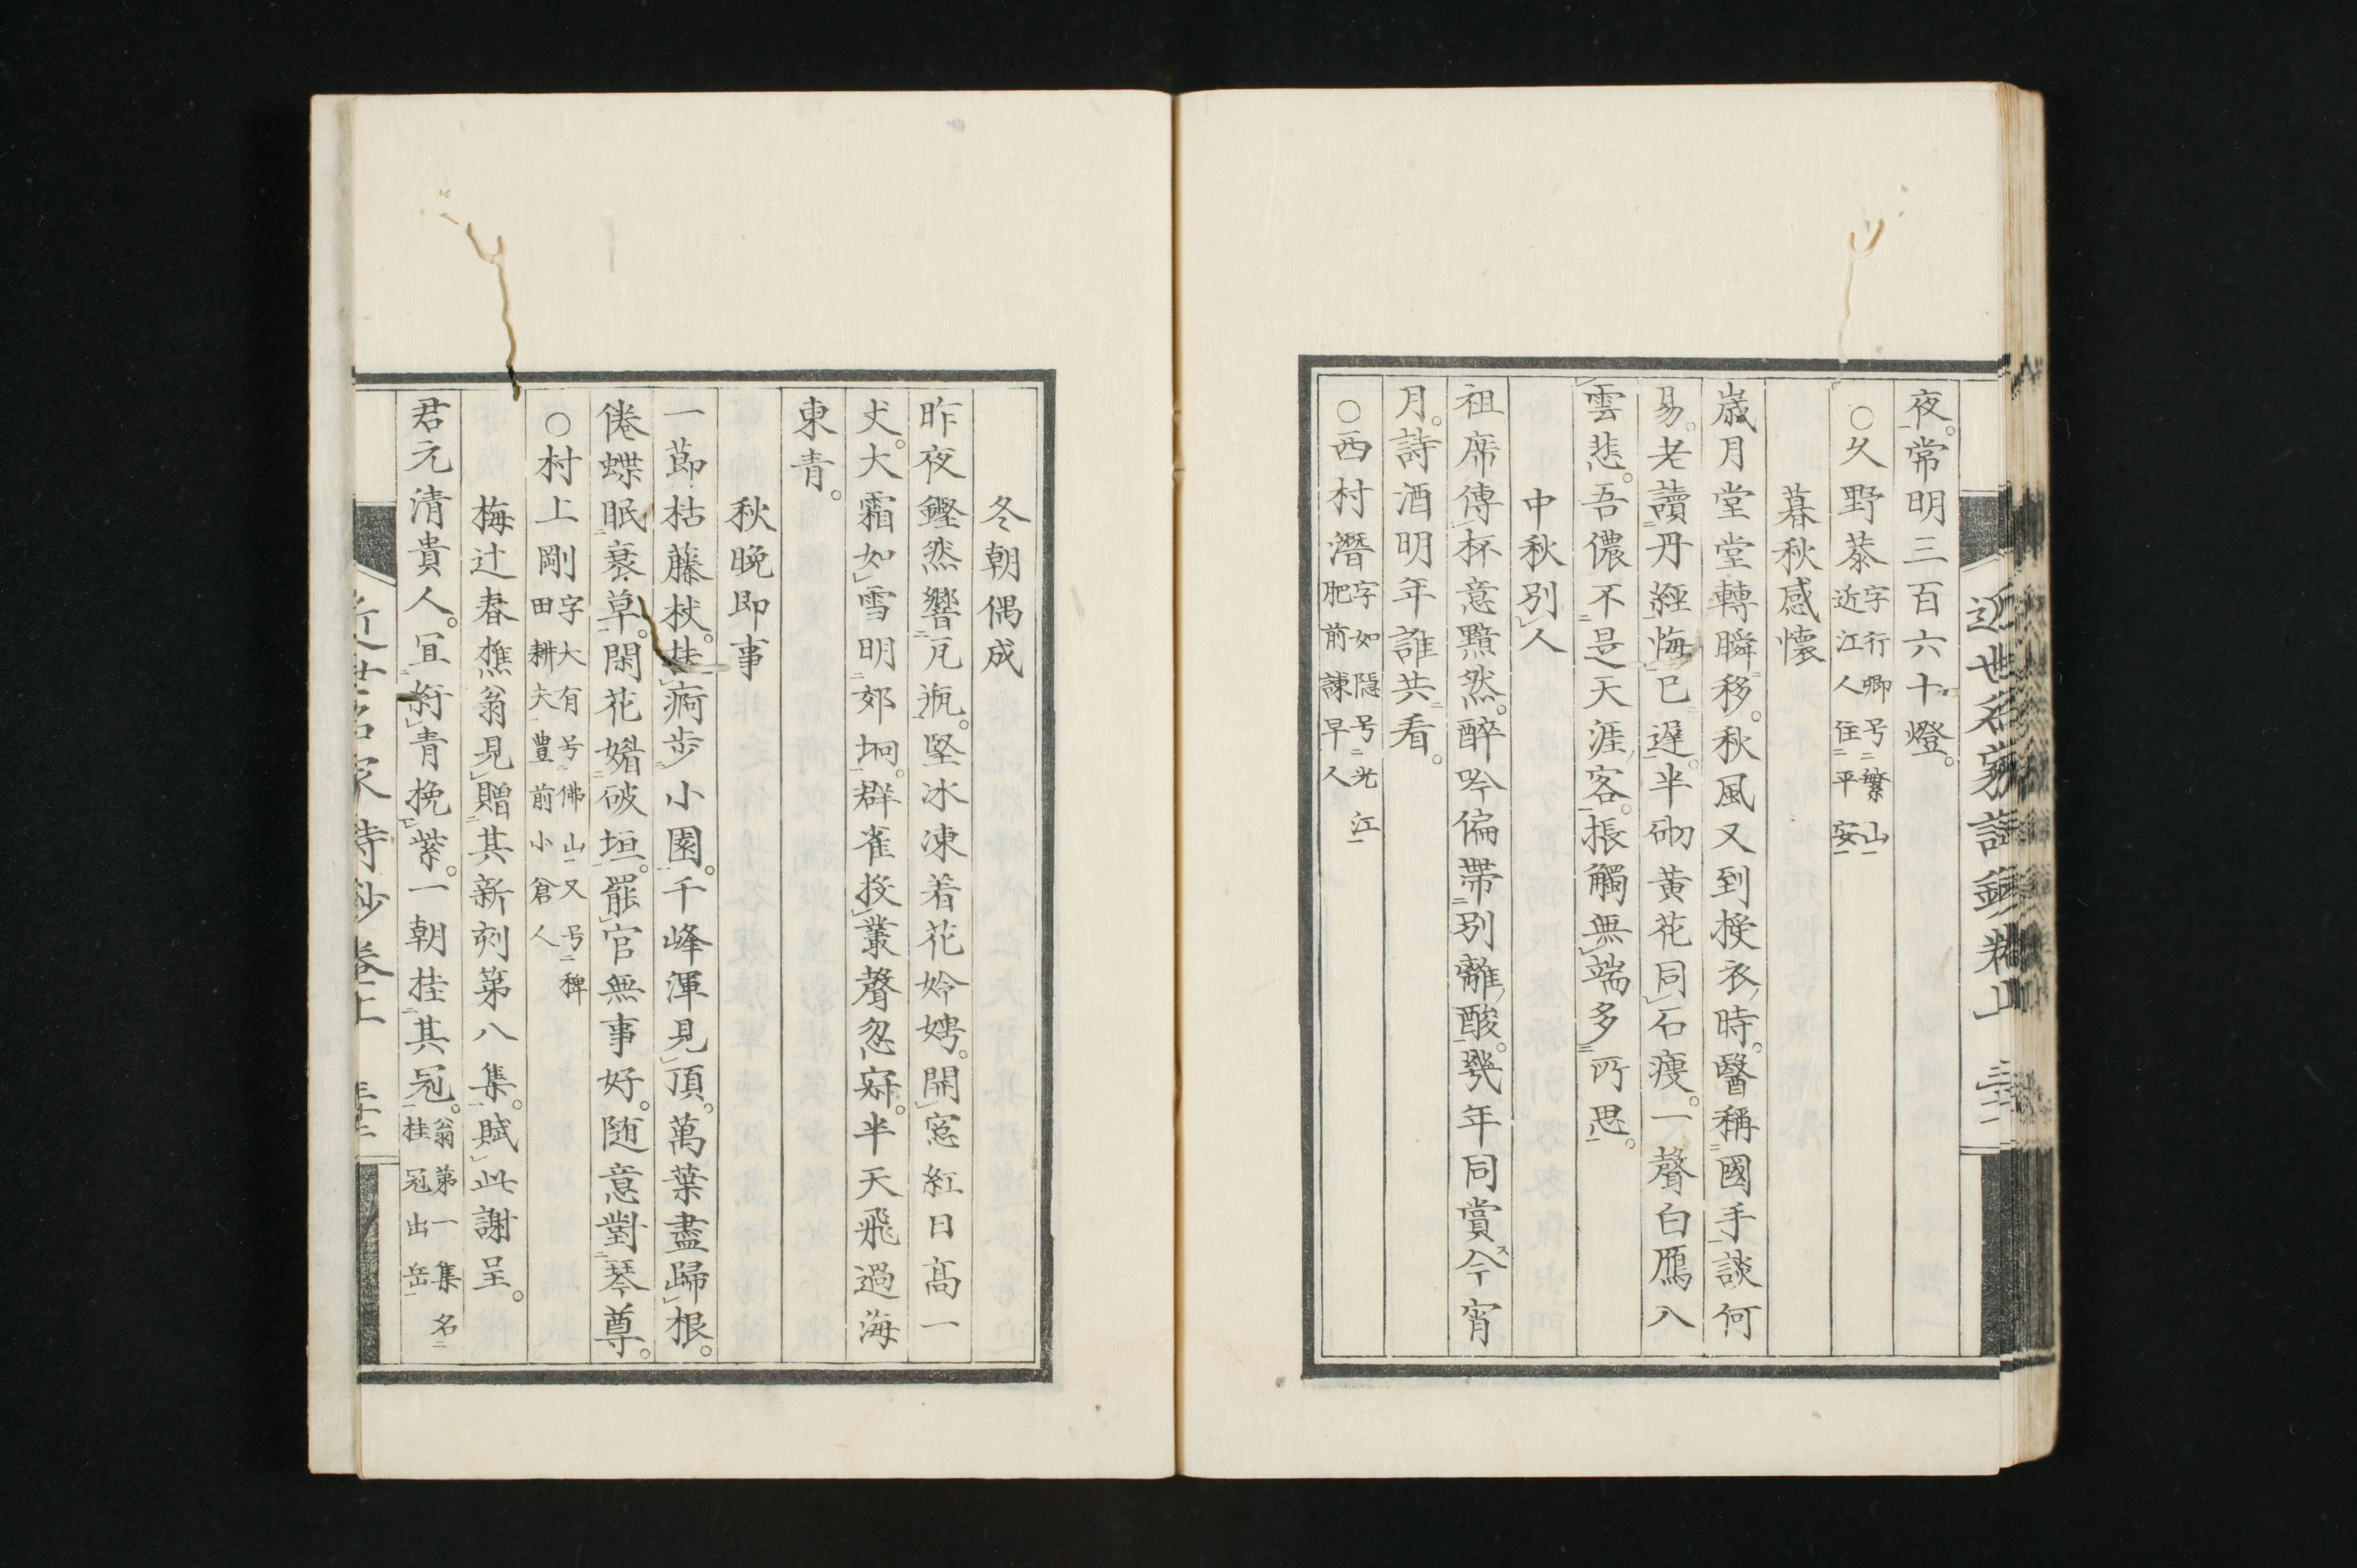 夜。常明三百六十燈。
○久野恭字行卿号繁山近江人住平安
暮秋感懐
歳月堂堂轉瞬移。秋風又到授衣時。醫稱國手談何
易。老讀丹經悔已遲。半砌黃花同石瘦。一聲白鴈八
雲悲。吾儂不是天涯客。振觸無端多所思。
中秋別人
祖席傳杯意黯然。醉吟偏帶別離酸。幾年同賞今宵
月。詩酒明年誰共看。
○西村潛字如隠号光江肥前諫早人
冬朝偶成
昨夜鏗然響瓦瓶。堅冰凍着花娉。開窓紅日高一
丈。大霜如雪明郊坰。群雀投叢聲忽寂。半天飛過海
東青。
秋晚即事
一莭枯藤杖。扶痾步小園。千峰渾見頂。萬葉盡歸根。
倦蝶眠衰草。閑花媚破垣。罷官無事好。随意對琴尊。
○村上剛字大有号佛山又号稗田耕夫豊前小倉人
梅辻春樵翁見贈其新刻第八集。賦此謝呈。
君元清貴人。宜紆青挽紫。一朝桂其冠。翁第一集名桂冠出岳
近世名家詩鈔卷上